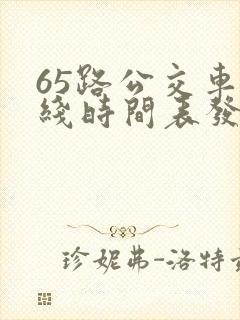 65路公交車
綫時間表發
珍妮弗-洛特